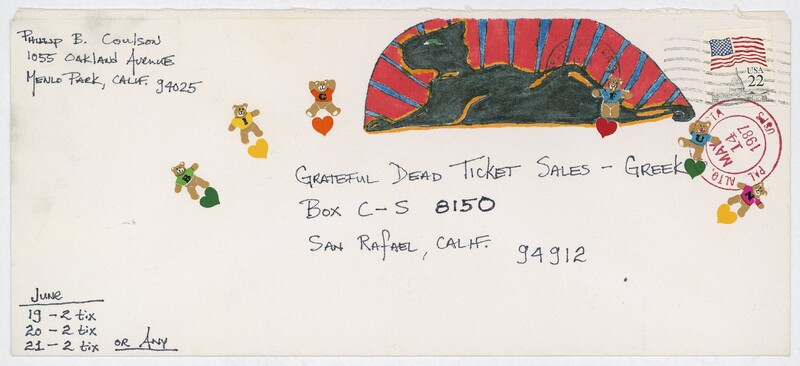 Phillip B. Coulson
1055 Oakland Avenue
Menlo Park, Calif. 94025
USA
22
B I G F U N
PAL ALTO,
USPS
MAY
14
1987
Grateful Dead Ticket Sales – Greek
Box C-S 8150
San Rafael, Calif. 94912
June
19 – 2 tix
20 – 2 tix
21 – 2 tix or Any